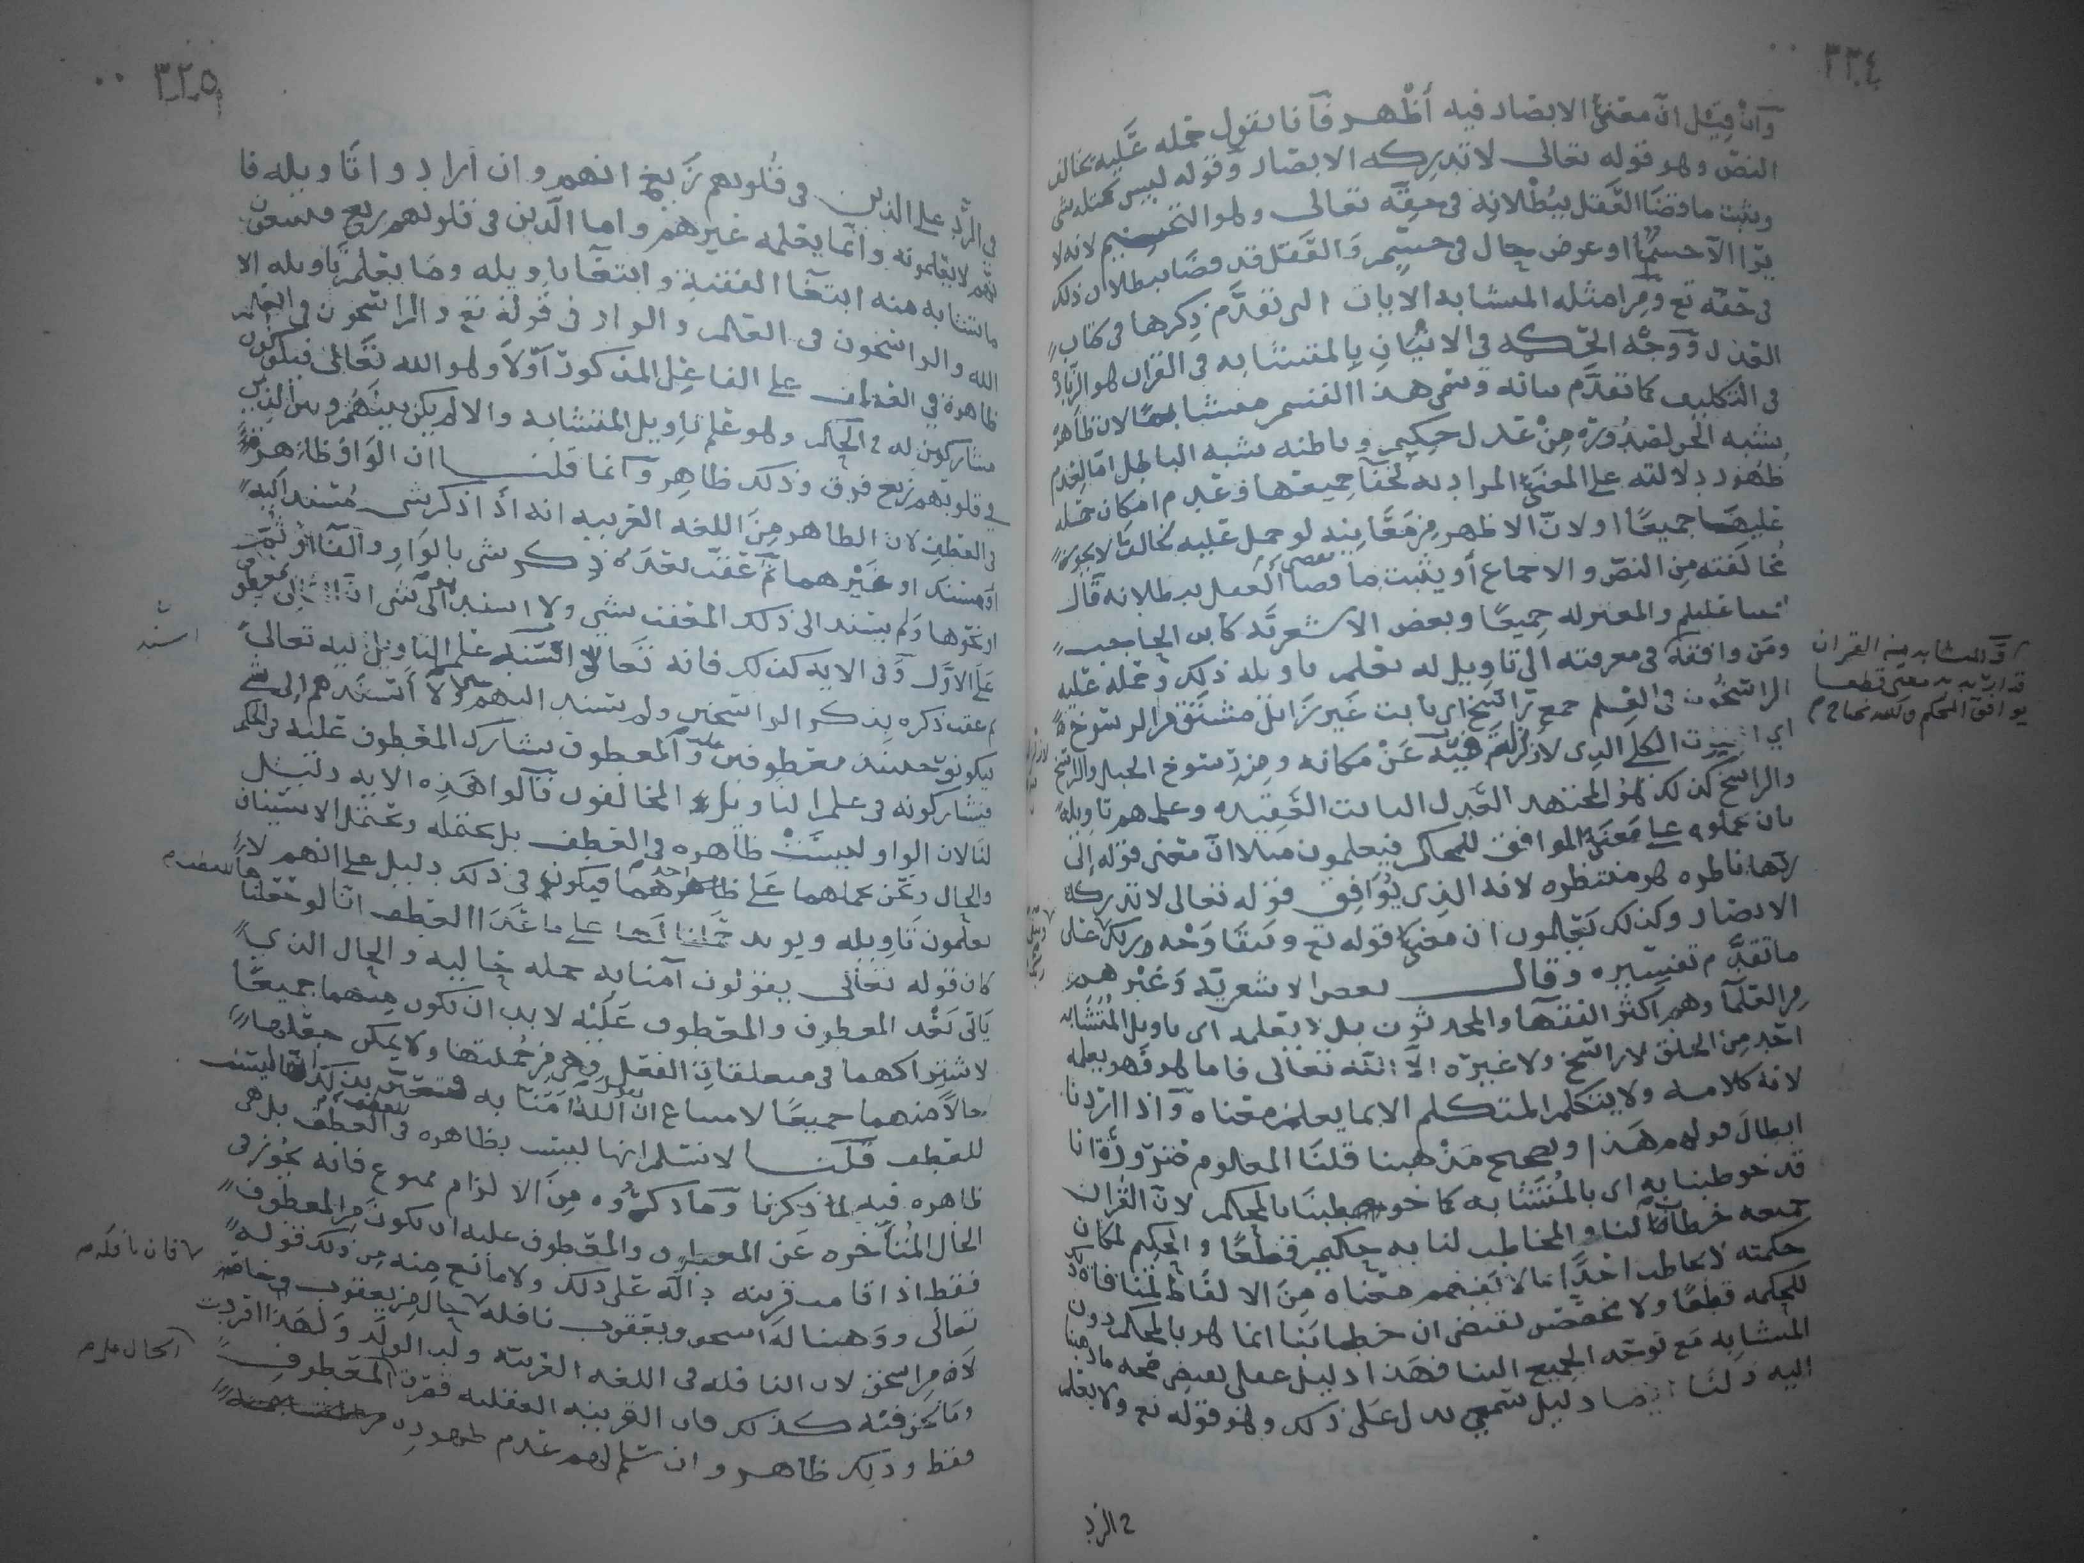 ٣٢٤
وان قيل انّ معنى الابصار فيه أظهر فانا نقول حمله عليه يخالف
النصّ وهو قوله تعالى لا تدركه الابصار وقوله ليس كمثله شى
ويثبت ما قضا العقل ببطلانه في حقه تعالى وهو التجسيم لانه لا
يرا الّا جسمًا او عرض حال في جسم والعقل قد قضا ببطلان ذلك
في حقه تع ومن امثله المتشابه الايات التى تقدّم ذكرها في كتاب
العدل ووجه الحكمه في الاتيان بالمتشابه في القران هو الزياده
في التكليف كما تقدّم بيانه وسمى هذا القسم متشابهًا لان ظاهره
يشبه الحق لصدوره من عدل حكيم وباطنه يشبه الباطل اما لعدم
ظهور دلالته على المعنى المراد به لخفا جميعها وعدم امكان حمله
عليها جميعًا او لانّ الاظهر من معانيه لو حمل عليه لخالف ما لا يجوز
مخالفته من النصّ والاجماع أو يثبت ما قضا العقل ببطلانه قال
ائمتنا عليلم والمعتزله جميعًا وبعض الاشعريّه كابن الحاجب
ومن وافقه في معرفته الى تاويل له يعلم تاويله ذلك وحمله عليه
الراسخون في العلم جمع راسخ اي ثابت غير زائل مشتق من الرسوخ
اي الثبوت الكلي الذى لا تزلزله هبّة عن مكانه ومنه رسوخ الجبل والراسخ
والراسخ كذلك هو المجتهد العدل الثابت العقيده وعلمهم تاويله
بان حملوه على معنى الموافق للمحكم فيعلمون مثلا انّ معنى قوله إلى
ربّها ناظره هو منتظره لانه الذي يوافق قوله تعالى لا تدركه
الابصار وكذلك يعلمون ان معنى قوله تع ويبقا وجه ربك على
ما تقدّم تفسيره وقال بعض الاشعريّه وغيرهم
من العلمآ وهم اكثر الفقهآ والمحدثون بل لا يعلمه اى تاويل المتشابه
احد من الخلق لا راسخ ولا غيره الّا الله تعالى فاما هو فهو يعلمه
لانه كلامه ولا يتكلم المتكلم الا بما يعلم معناه واذا اردنا
ابطال قولهم هذا وتصحيح مذهبنا قلنا المعلوم ضرورة انا
قد خوطبنا به اى بالمتشابه كما خوطبنا بالمحكم لانّ القران
جميعه خطاب لنا والمخاطب لنا به حكيم قطعًا والحكيم لمكان
حكمته لا يخاطب احدًا بما لا يفهم معناه من الالفاظ لمنافاة ذلك
للحكمه قطعًا ولا مخصّص يقتضى ان خطابنا انما هو بالمحكم دون
المتشابه مع توجه الجميع الينا فهذا دليل عقلي يقتضى صحه ما ذهبنا
اليه ولنا ايضا دليل سمعي يدل على ذلك وهو قوله تع ولا يعلم
في الرد
اوّ المتشابه من القران
قد اريد به معنى قطعا
يوافق المحكم ولكنه يحتاج
٣٢٥
في الرّد على الذين في قلوبهم زيغ انهم وان ارادوا تاويله فا
نهم لا يعلمونه وانّما يعلمه غيرهم واما الّذين في قلوبهم زيغ فيتبعون
ما تشابه منه ابتغآ الفتنة وابتغآ تاويله وما يعلم تاويله الا
الله والراسخون في العلم والواو في قوله تع والراسخون في العلم
ظاهرة في العطف على الفاعل المذكور اوّلا وهو الله تعالى فيكونون
مشاركين له في الحكم وهو علم تاويل المتشابه والا لم يكن بينهم وبين الذين
في قلوبهم زيغ فرق وذلك ظاهر وانما قلنا ان الواو ظاهرة
في العطف لان الظاهر من اللغه العربيه انه اذا ذكر شى مسند اليه
او مسند او غيرهما ثم عقب بعده ذكر شى بالواو والفا او ثم
او نحوها ولم يسند الى ذلك المعقب شي ولا اسند الى شى انّ الثانى معطوف
على الاوّل وفى الايه كذلك فانه تعالى اسند علم التاويل ليه تعالى
ثم عقب ذكره بذكر الراسخين ولم يسند اليهم ولا أسندهم إلى شى
فيكونون حينئذ معطوفين والمعطوف يشارك المعطوف عليه في الحكم
فيشاركونه في علم التاويل المخالفون قآلوا هذه الايه دليل
لنا لان الواو ليست ظاهره في العطف بل محتمله وتحتمل الاستيناف
والحال ونحن نحملهما على ظاهرهما فيكون في ذلك دليل على انهم لا
يعلمون تاويله ويويد حملنا لها على ما عدا العطف انّا لو جعلنا
كان قوله تعالى يقولون آمنا به جمله حاليه والحال الذي
يأتى بعد المعطوف والمعطوف عليه لا بد ان تكون منهما جميعًا
لاشتراكهما في متعلقات الفعل وهي من جملتها ولا يمكن جعلها
حالا منهما جميعًا لامتناع ان يقول الله امنّا به فتعيّن بذلك انها ليست
للعطف قلنا لا نسلم انها ليست بظاهره في العطف بل هى
ظاهره فيه لما ذكرنا وما ذكروه من الالزام ممنوع فانه يجوز في
الحال المتأخره عن المعطوف والمعطوف عليه ان تكون من المعطوف
فقط اذا قامت قرينه دآلّه على ذلك ولا مانع منه من ذلك قوله
تعالى ووهبنا له اسحق ويعقوب نافله حال من يعقوب خاصه
لا من اسحق لان النافله في اللغه العربيّه ولد الولد ولهذا افردت
وما نحن فيه كذلك فان القرينه العقليه قصرت المعطوف
فقط وذلك ظاهر وان سلم لهم عدم ظهوره
اسند
هاللعطف
فان نافله
الحال على